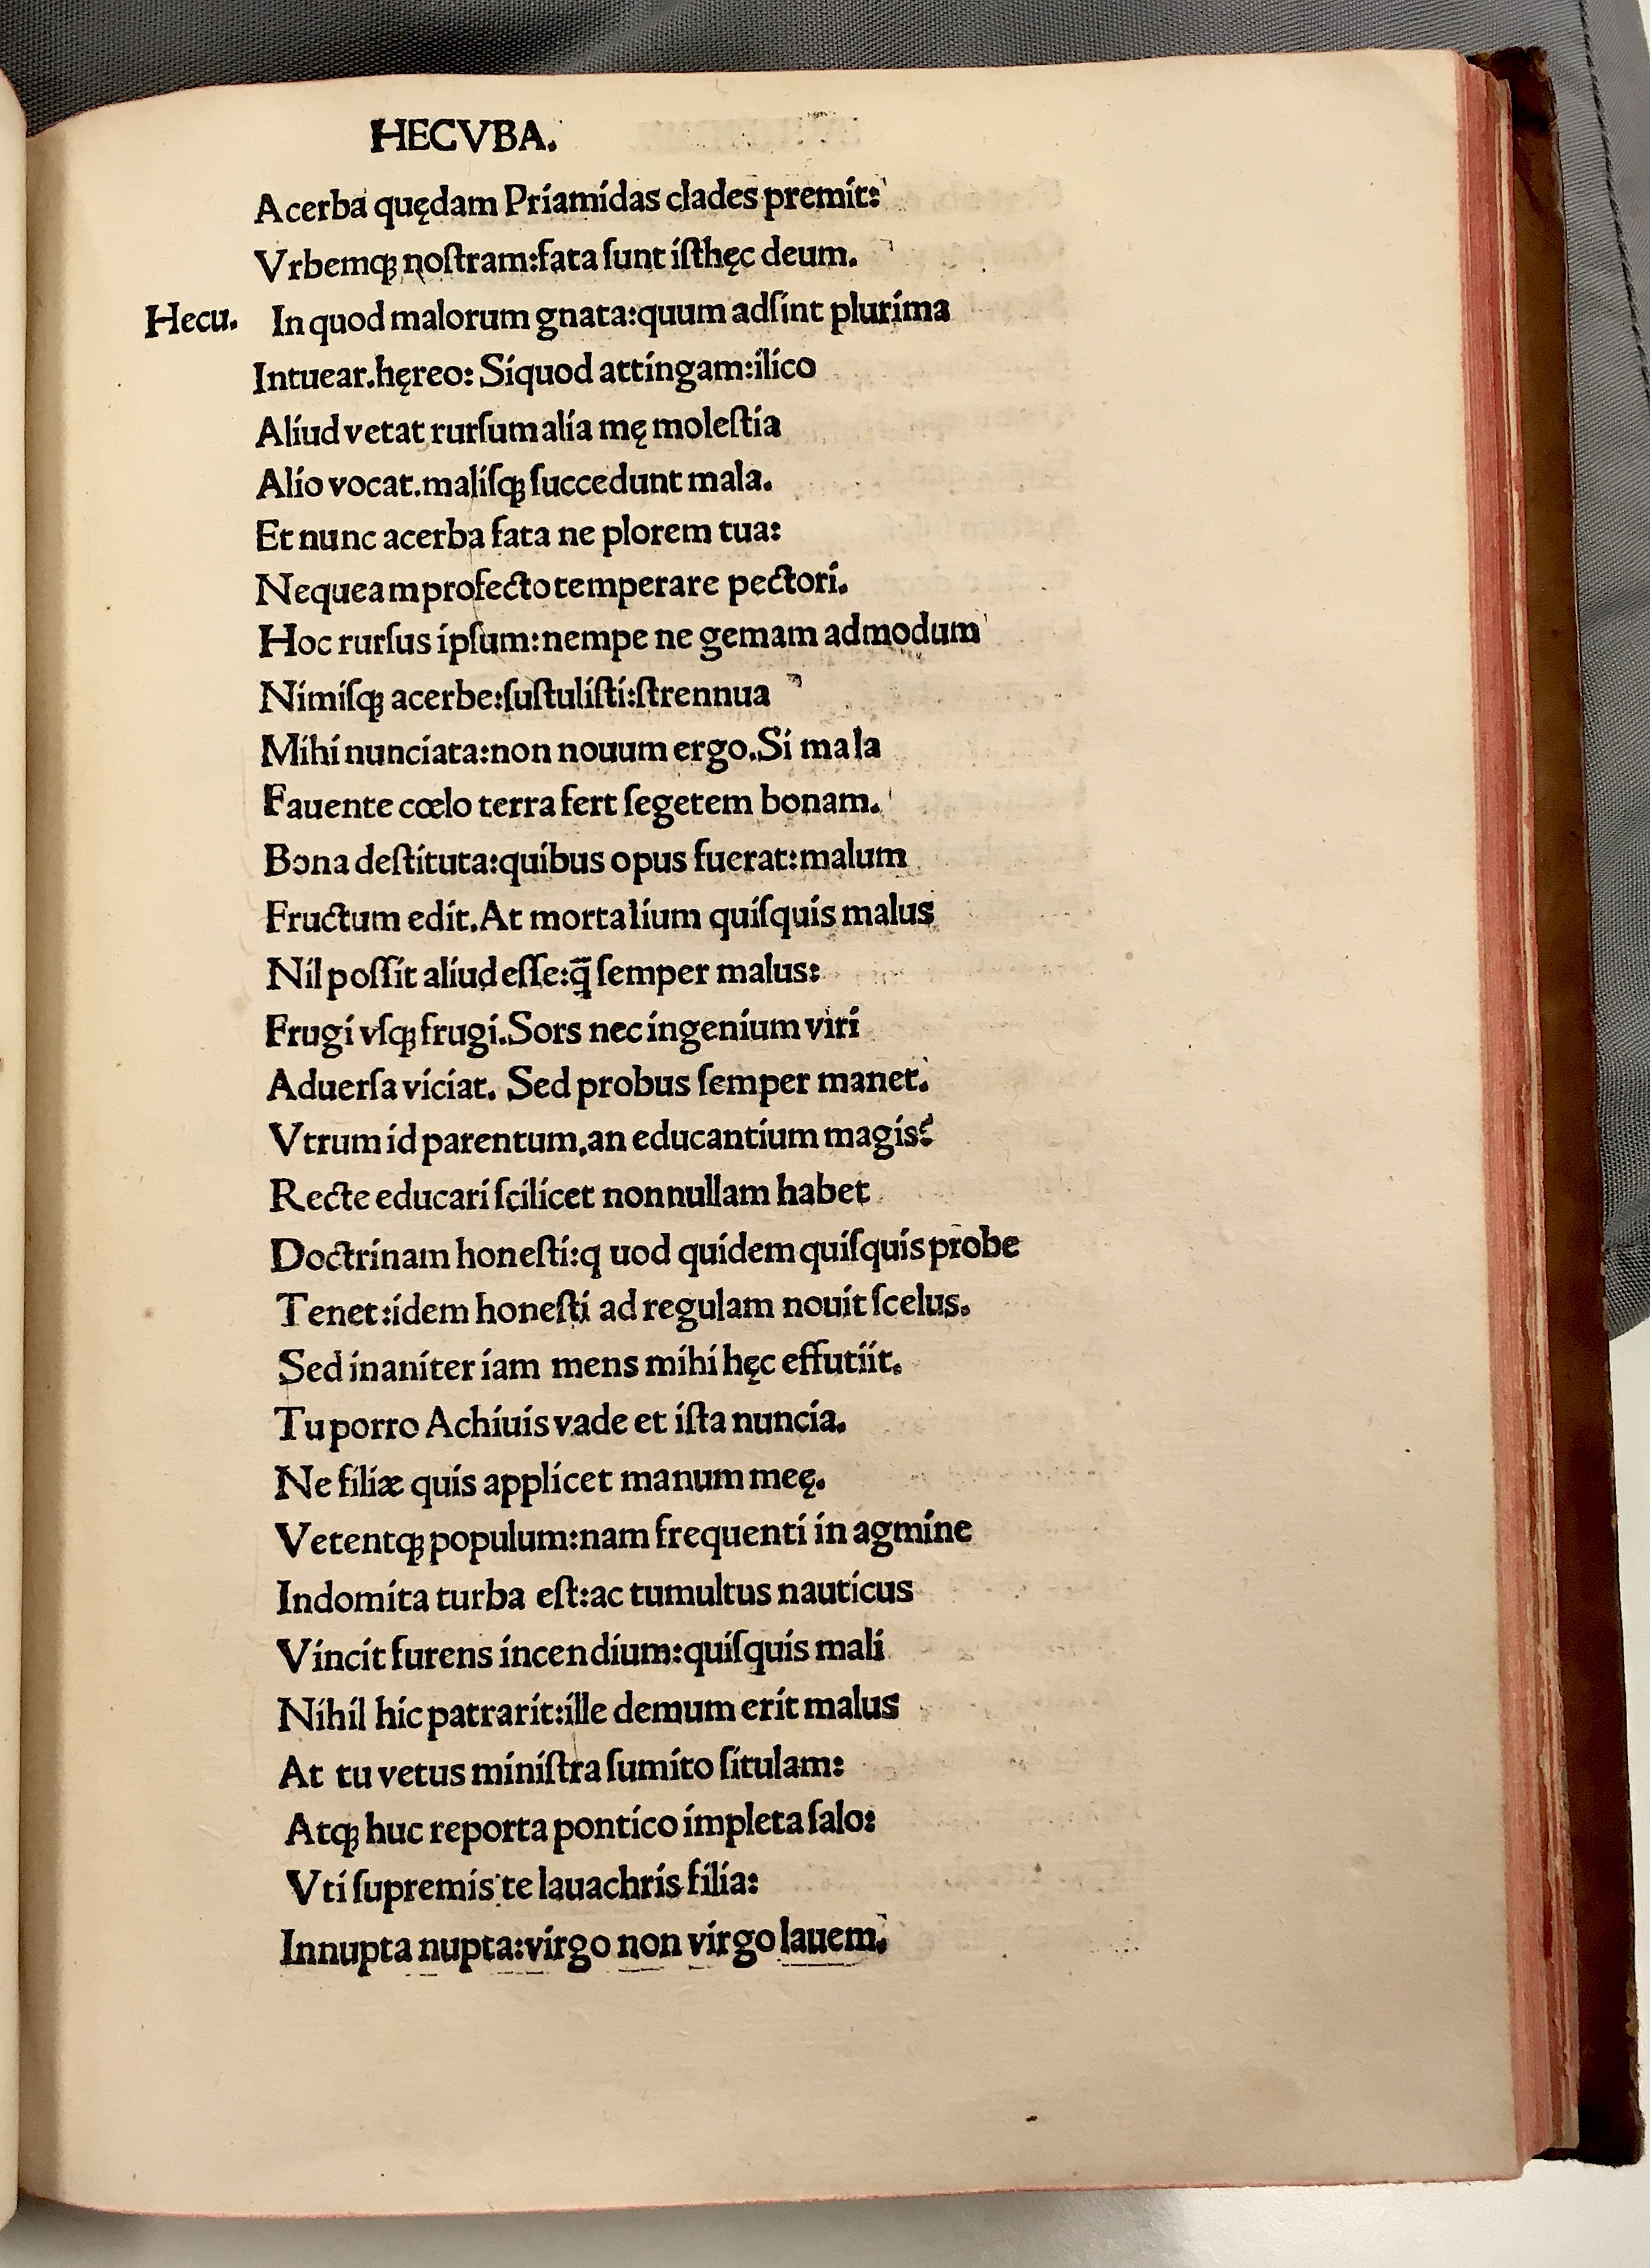 HECVBA.
Acerba quędam Priamidas clades premit:
Vrbemqꝫ noſtram:fata ſunt iſthęc deum.
Hecu. In quod malorum gnata:quum adſint plurima
Intuear.hęreo: Siquod attingam:ilico
Aliud vetat rurſum alia mę moleſtia
Alio vocat.maliſqꝫ ſuccedunt mala.
Et nunc acerba fata ne plorem tua:
Nequeam profecto temperare pectori.
Hoc rurſus ipſum:nempe ne gemam admodum
Nimiſqꝫ acerbe:ſuſtuliſti:ſtrennua
Mihi nunciata:non nouum ergo.Si mala
Fauente cœlo terra fert ſegetem bonam.
Bona deſtituta:quibus opus fuerat:malum
Fructum edit.At mortalium quiſquis malus
Nil poſſit aliud eſſe:q̄ ſemper malus:
Frugi vſqꝫ frugi.Sors nec ingenium viri
Aduerſa viciat. Sed probus ſemper manet.
Vtrum id parentum,an educantium magis?
Recte educari ſcilicet nonnullam habet
Doctrinam honeſti:q uod quidem quiſquis probe
Tenet:idem honeſti ad regulam nouit ſcelus.
Sed inaniter iam mens mihi hęc effutiit.
Tu porro Achiuis vade et iſta nuncia.
Ne filiæ quis applicet manum meę.
Vetentqꝫ populum:nam frequenti in agmine
Indomita turba eſt:ac tumultus nauticus
Vincit furens incendium:quiſquis mali
Nihil hic patrarit:ille demum erit malus
At tu vetus miniſtra ſumito ſitulam:
Atqꝫ huc reporta pontico impleta ſalo:
Vti ſupremis te lauachris filia:
Innupta nupta:virgo non virgo lauem.